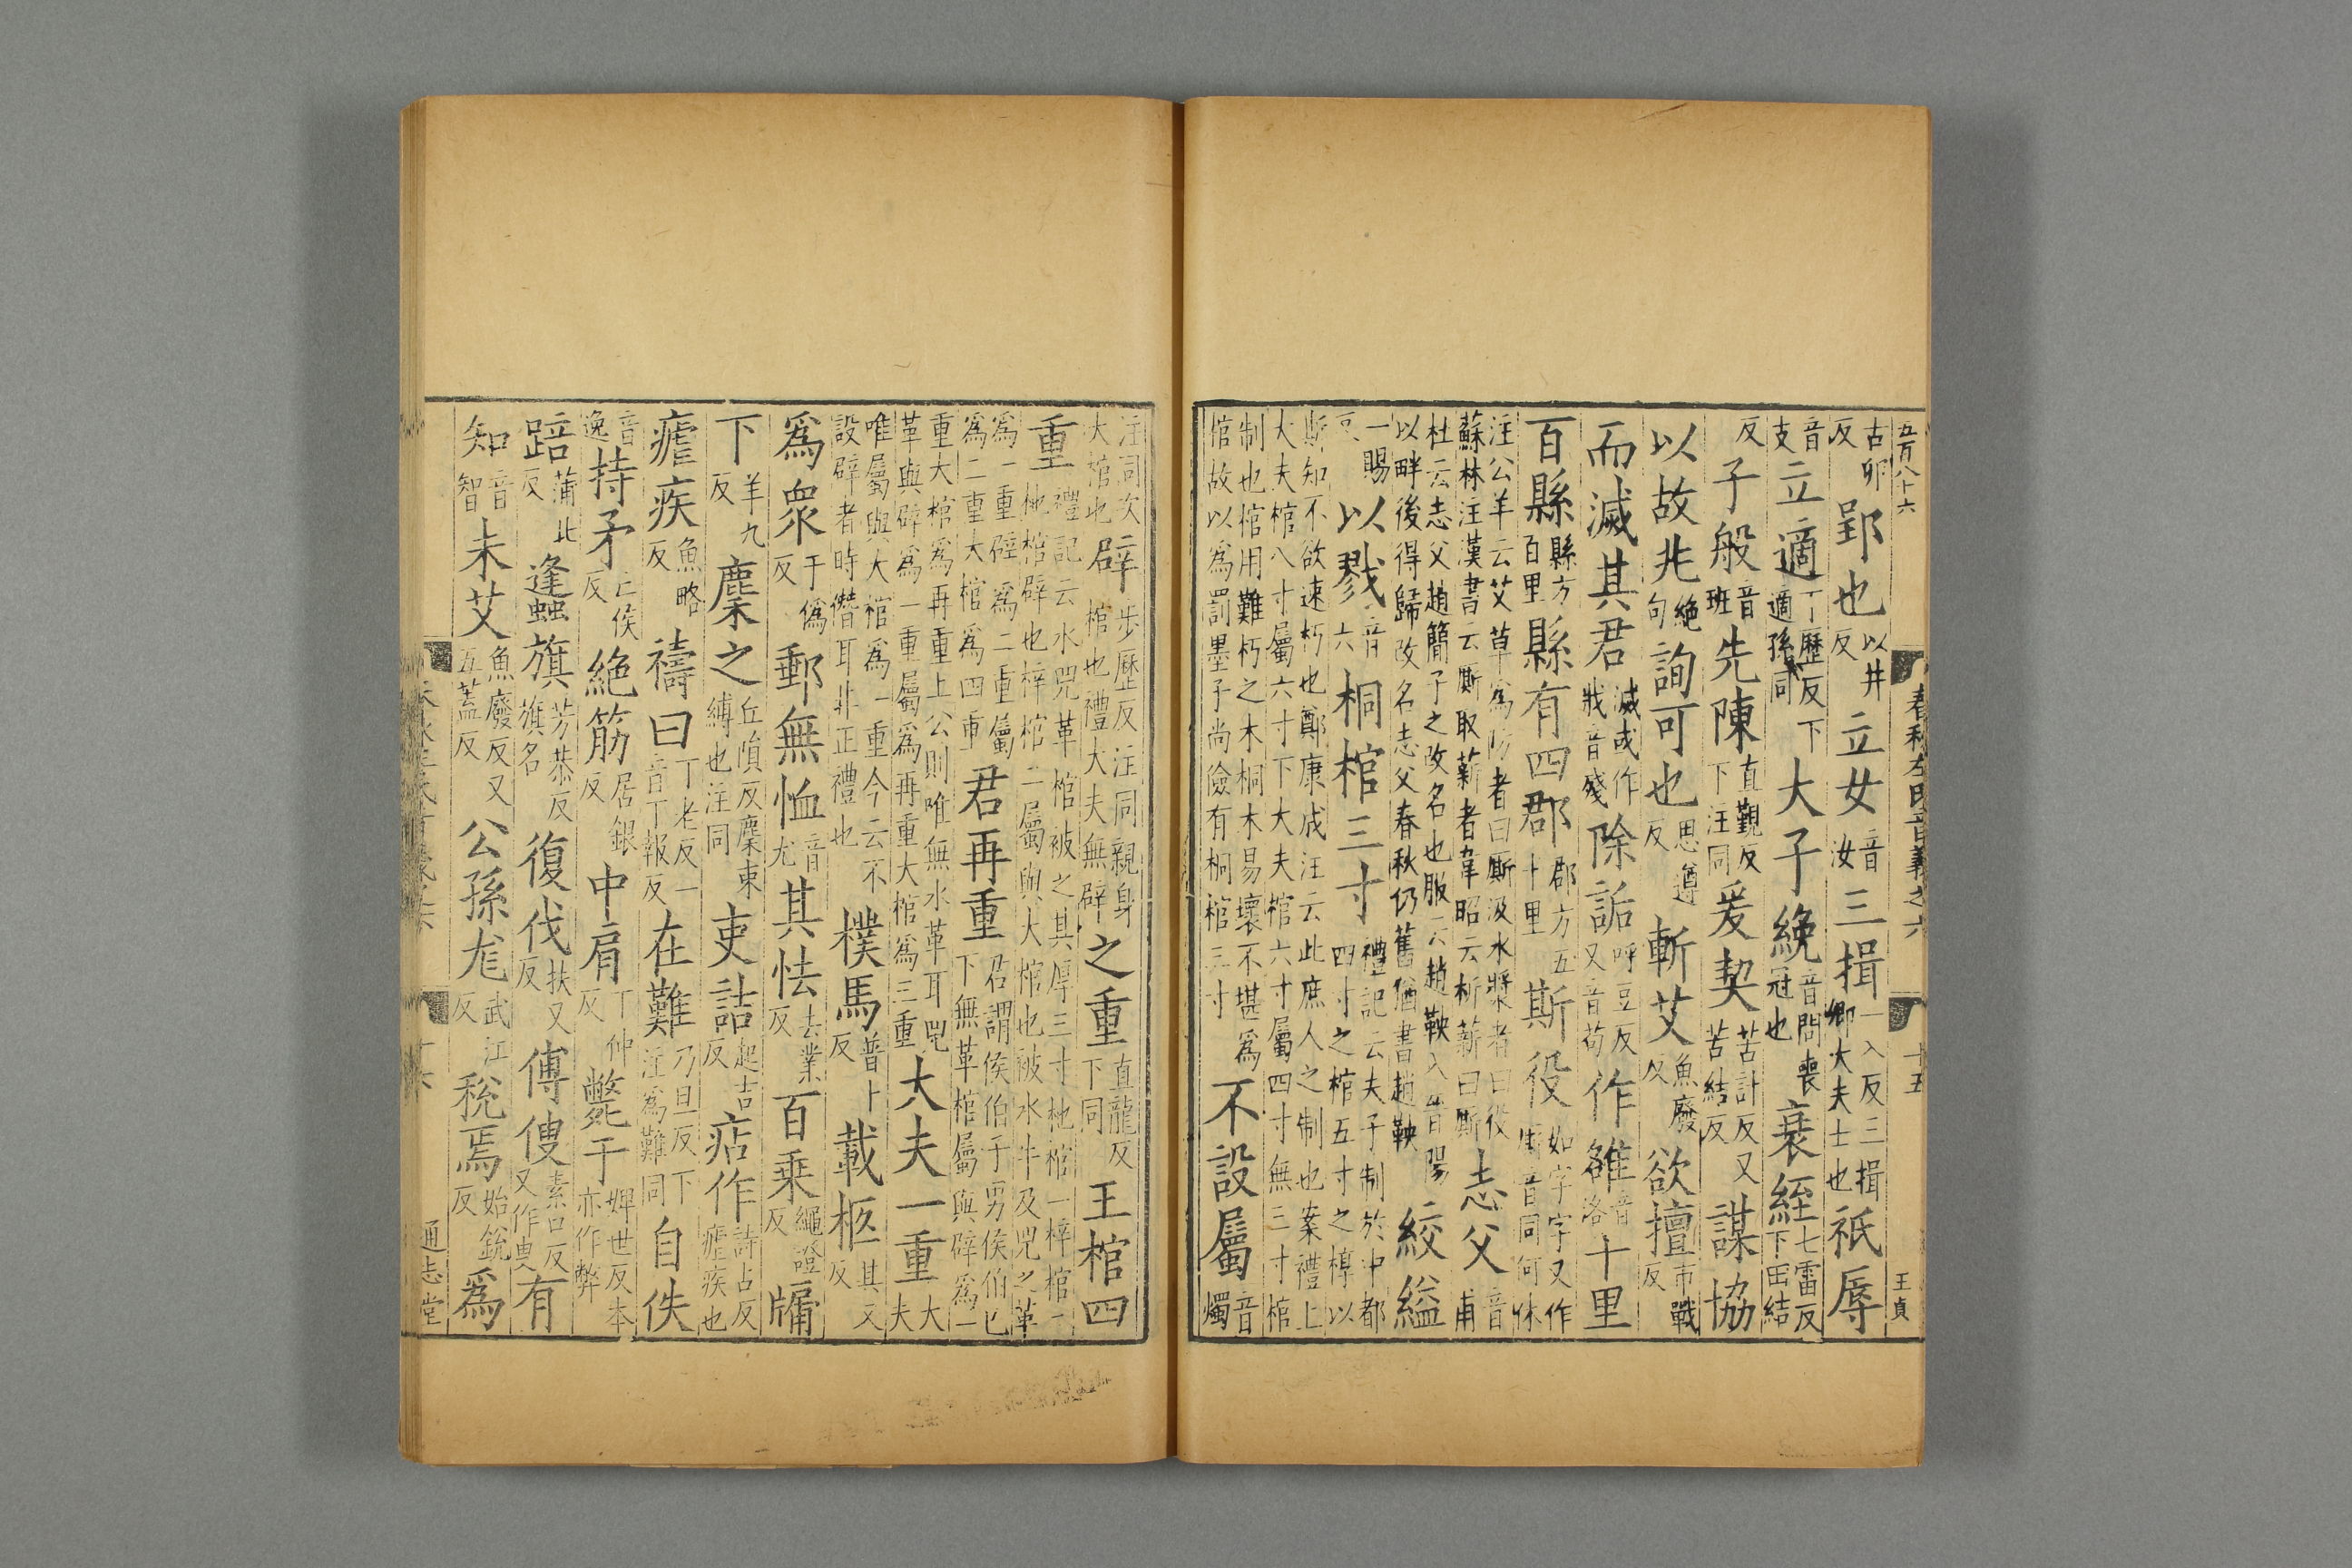 五百八十六 春秋左氏音義之六 十五 王貞
古卵反 郢也以井反 立女音汝 三揖一入反三揖卿大夫士也 祇辱
音支 立適丁歷反下適孫同 大子絻音問喪冠也 衰絰七雷反下田結
反 子般音班 先陳直覲反下注同 爰契苦計反又苦結反 謀協
以故兆絶句 詢可也思遵反 斬艾魚廢反 欲擅市戰反
而滅其君滅或作戕音殘 除詬呼豆反又音苟 作雒音洛 十里
百縣縣方百里 縣有四郡郡方五十里 斯役如字字又作廝音同何休
注公羊云艾草爲防者曰廝汲水漿者曰役蘇林注漢書云廝取薪者韋昭云析薪曰廝 志父音甫
杜云志父趙簡子之改名也服云趙鞅入晉陽以畔後得歸改名志父春秋仍舊猶書趙鞅 絞縊
一賜反 以戮音六 桐棺三寸禮記云夫子制於中都四寸之棺五寸之椁以
斯知不欲速朽也鄭康成注云此庶人之制也案禮上大夫棺八寸屬六寸下大夫棺六寸屬四寸無三寸棺
制也棺用難朽之木桐木易壞不堪爲棺故以爲罰墨子尚儉有桐棺三寸 不設屬音燭
注同次大棺也 辟步歷反注同親身棺也禮大夫無辟 之重直龍反下同 王棺四
重禮記云水兕革棺被之其厚三寸杝棺一梓棺二杝棺辟也梓棺二屬與大棺也被水牛及兕之革
爲一重辟爲二重屬爲三重大棺爲四重 君再重君謂侯伯子男侯伯已下無革棺屬與辟爲一
重大棺爲再重上公則唯無水革耳兕革與辟爲一重屬爲再重大棺爲三重 大夫一重大夫
唯屬與大棺爲一重今云不設辟者時僭耳非正禮也 樸馬普卜反 載柩其又反
爲衆于僞反 郵無恤音尤 其怯去業反 百乘繩證反 牖
下羊九反 麇之丘隕反麇束縛也注同 吏詰起吉反 痁作詩占反瘧疾也
瘧疾魚略反 禱曰丁老反一音丁報反 在難乃旦反下注爲難同 自佚
音逸 持矛亡侯反 絶筋居銀反 中肩丁仲反 斃于婢世反本亦作弊
踣蒲北反 逢蠭旗芳恭反旗名 復伐扶又反 傅傁素口反又作叟 有
知音智 未艾魚廢反又五蓋反 公孫尨武江反 稅焉始銳反 爲
通志堂